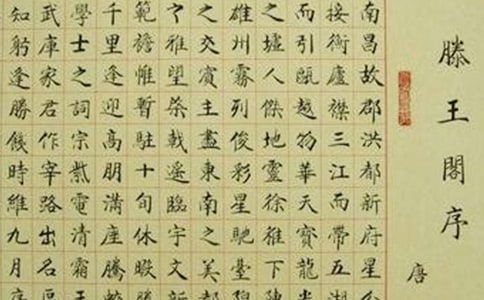 滕王閣序
唐
南昌故郡洪都新府星分
接衡廬襟三江而帶五湖
而引甌越物華天寶龍光
之墟人傑地靈徐孺下陳
雄州霧列俊彩星馳臺隍
之交賓主盡東南之美都
之雅望棨戟遙臨宇文新
範襜惟暫駐十旬休暇勝
千里逢迎高朋滿座騰蛟
學士之詞宗紫電清霜王
武庫家君作宰路出名區
知躬逢勝餞時維九月序